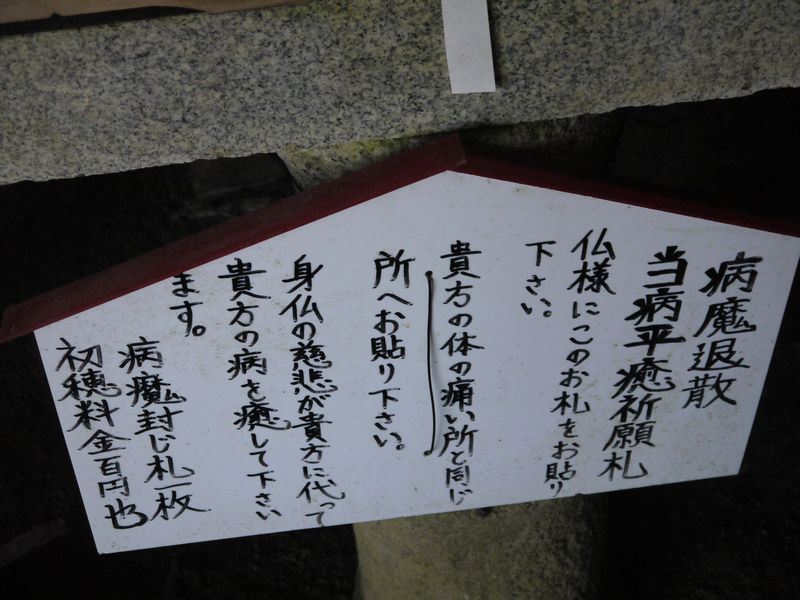 病魔退散
当病平癒祈願札
仏様にこのお札をお貼り
下さい。
貴方の体の痛い所と同じ
所へお貼り下さい。
身仏の慈悲が貴方に代って
貴方の病を癒して下さい
ます。
病魔封じ札一枚
初穂料金百円也